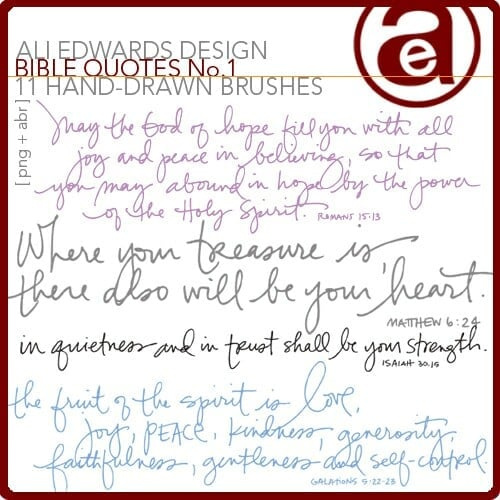 ALI EDWARDS DESIGN
BIBLE QUOTES No.1
11 HAND-DRAWN BRUSHES
[png + abr]
ae
may the God of hope fill you with all
joy and peace in believing, so that
you may abound in hope by the power
of the Holy Spirit. ROMANS 15:13
Where your treasure is,
there also will be your heart.
MATTHEW 6:24
in quietness and in trust shall be your strength.
ISAIAH 30:15
the fruit of the spirit is love,
joy, PEACE, kindness, generosity,
faithfulness, gentleness and self-control.
GALATIONS 5:22-23